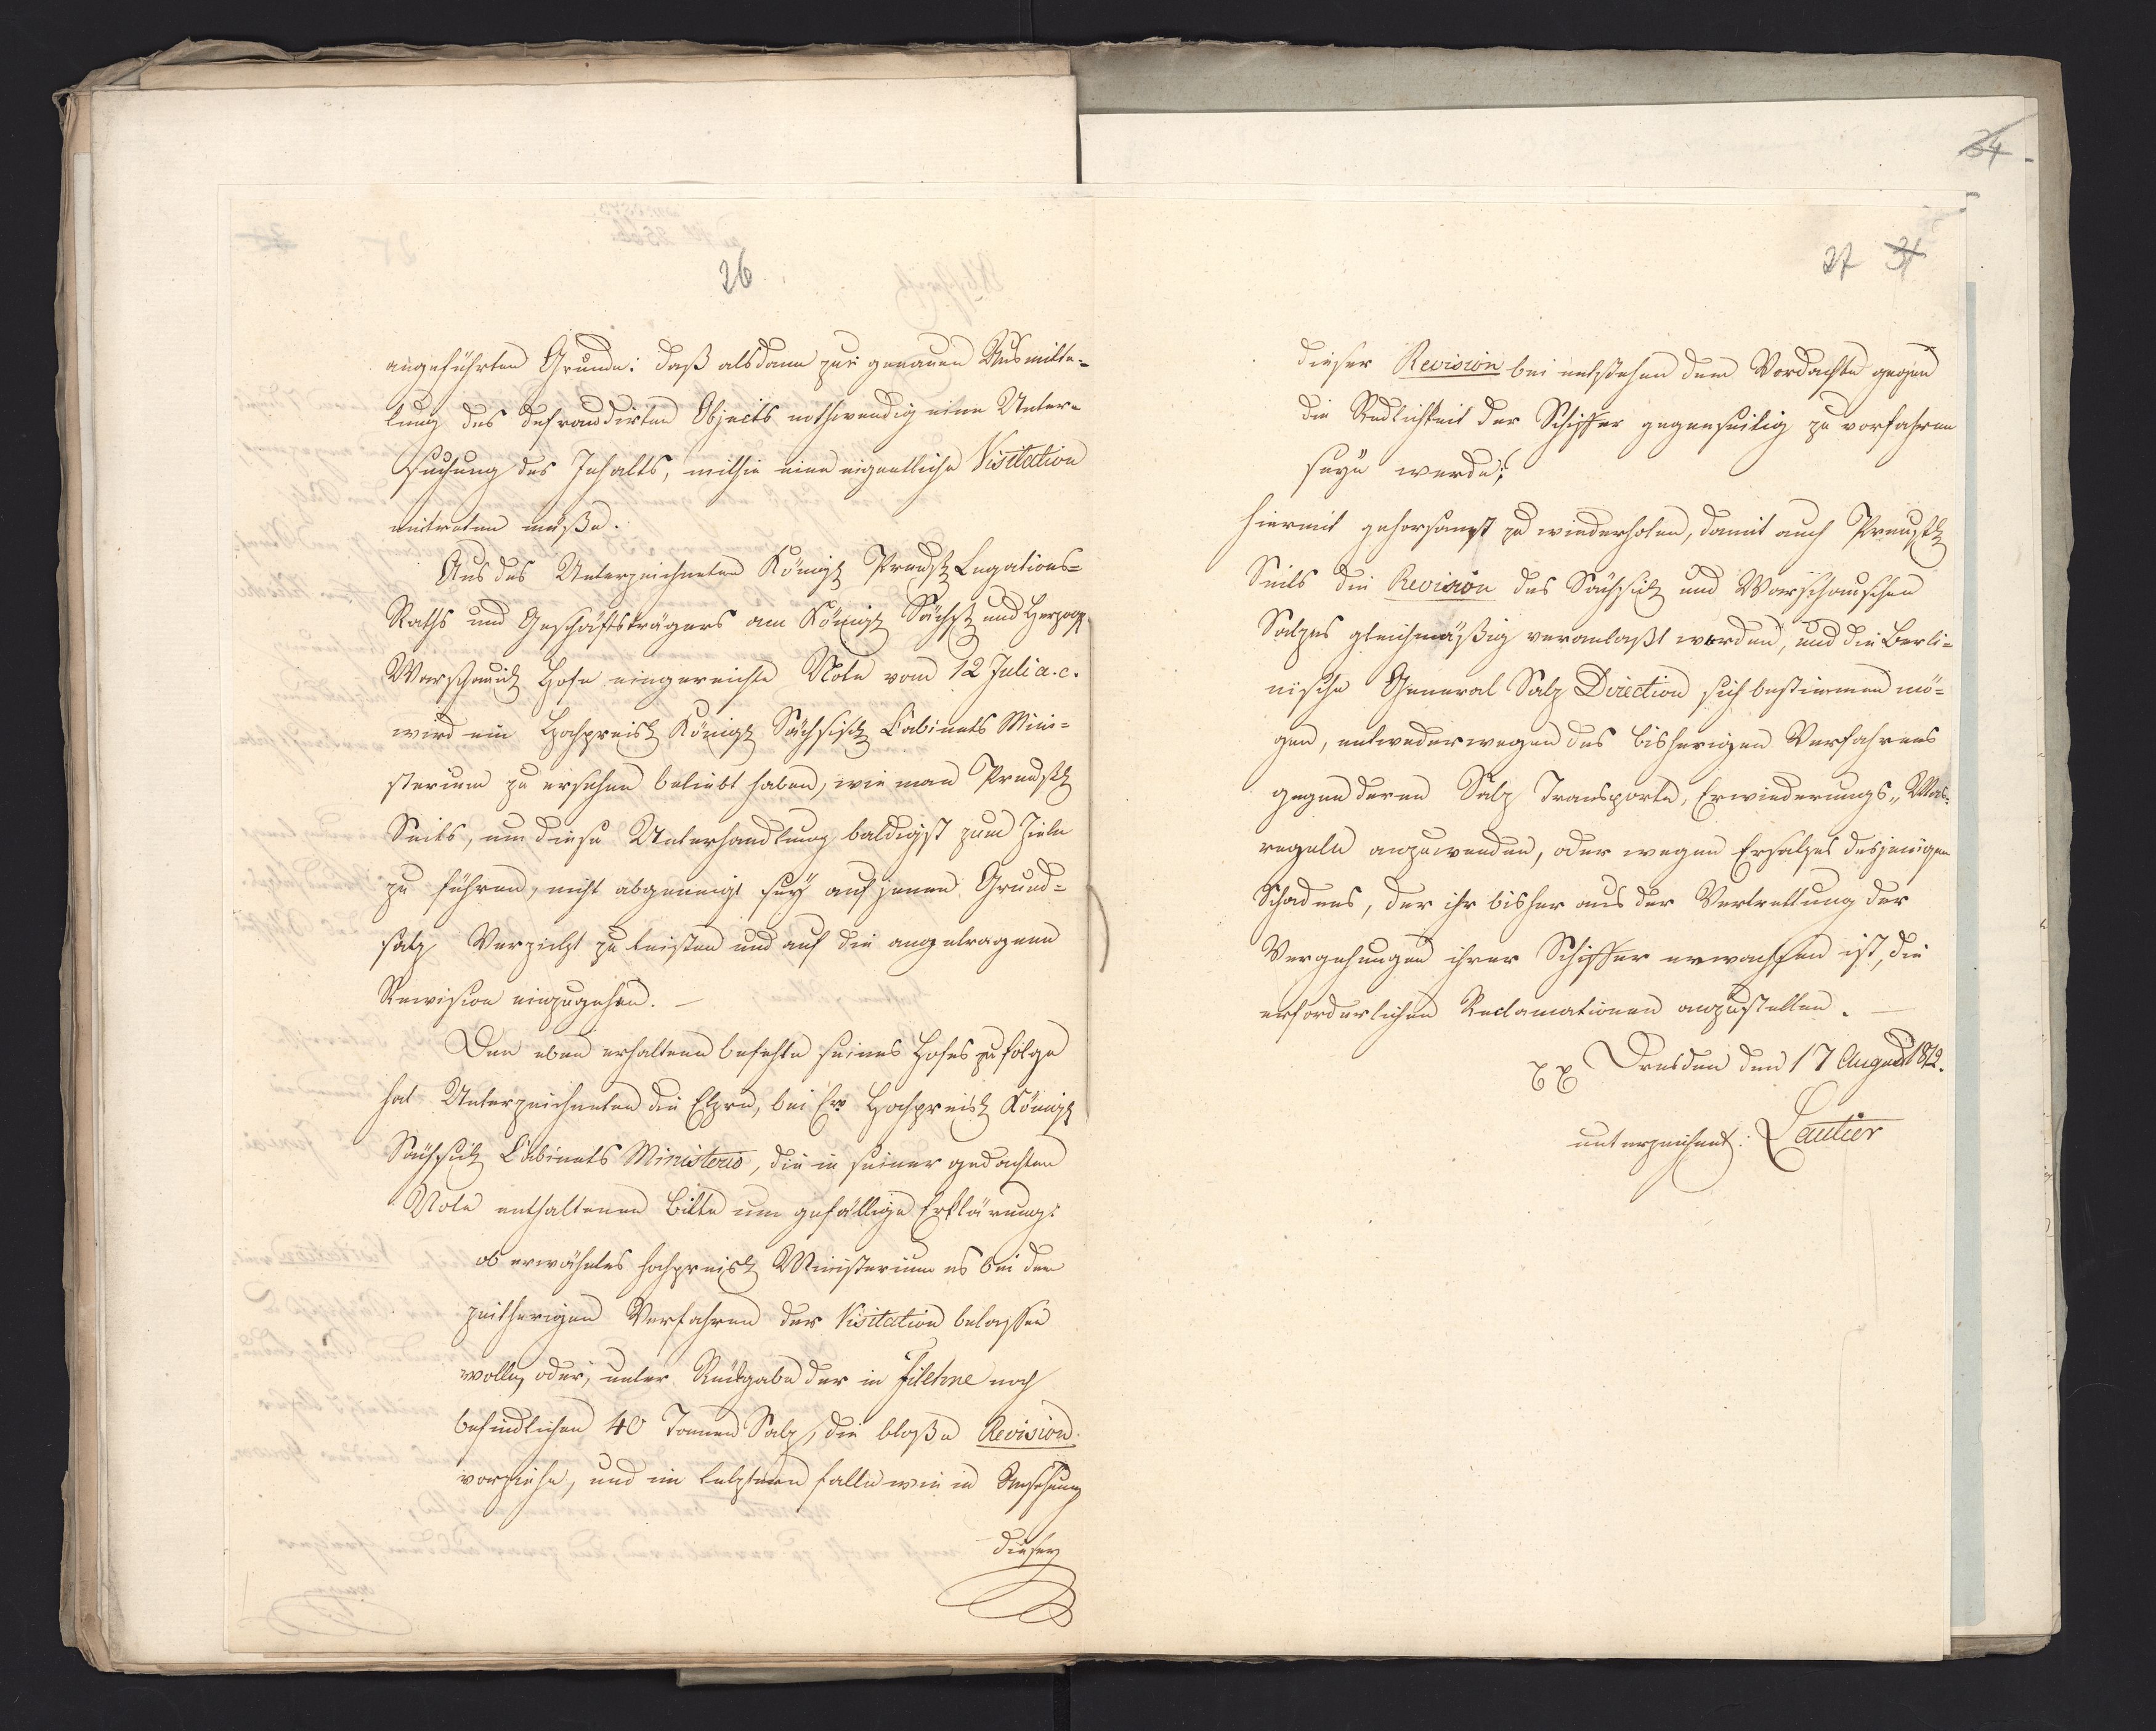 26
angeführten Grunde: daß alsdann zur genauen Ausmitte-
lung des defraudirten Objects nothwendig eine Unter-
suchung des Inhalts, mithin eine eigentliche Visitation
eintreten müße.
Aus des Unterzeichneten Königl Preuß Legations-
Raths und Geschäftsträgers am Königl Sächß und Herzogl
Warschauisch Hofe eingereichte Note vom 12 Juli a. c.
wird ein Hochpreisl Königl Sächsisch Cabinets Mini-
sterium zu ersehen beliebt haben, wie man Preuß
Seits, um diese Unterhandlung baldigst zum Ziele
zu führen, nicht abgeneigt sey auf jenen Grund-
satz Verzicht zu leisten und auf die angetragene
Revision einzugehen. —
Den eben erhaltenen befehle seines Hofes zu folge
hat Unterzeichneter die Ehre, bei Ew Hochpreisl Königl
Sächsisch Cabinets Ministerio, die in seiner gedachten
Note enthaltenen Bitte um gefällige Erklärung:
ob erwähntes hochpreisl Ministerium es bei dem
zeitherigen Verfahren der Visitation belassen
wolle, oder, unter Rückgabe der in Filehne noch
befindlichen 40 Tonnen Salz, die bloße Revision
vorziehe, und im letztern falle wie in Ansehung
dieser
34
27 31
dieser Revision bei entstehen dem Verdachte gegen
die Redlichkeit der Schiffer gegenseitig zu verfahren
seyn werde;
hiermit gehorsamst zu wiederholen, damit auch Preuß
Seits die Revision des Sächsisch und Warschauschen
Salzes gleichmäßig veranlaßt werden, und die Berli-
nische General Salz Direction sich bestimmen mö-
gen, entweder wegen des bisherigen Verfahrens
gegen deren Salz Transporte, Erwiederungs-Mas-
regeln anzuwenden, oder wegen Ersatzes desjenigen
Schadens, der ihr bisher aus der Vertrettung der
Vergehungen ihrer Schiffer erwachsen ist, die
erforderlichen Reclamationen anzustellen. —
Dresden den 17 August 1812.
unterzeichnet: Lautier